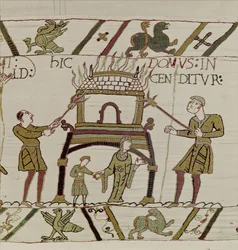 hIC DOMVS:IN
ID: CENDITVR: